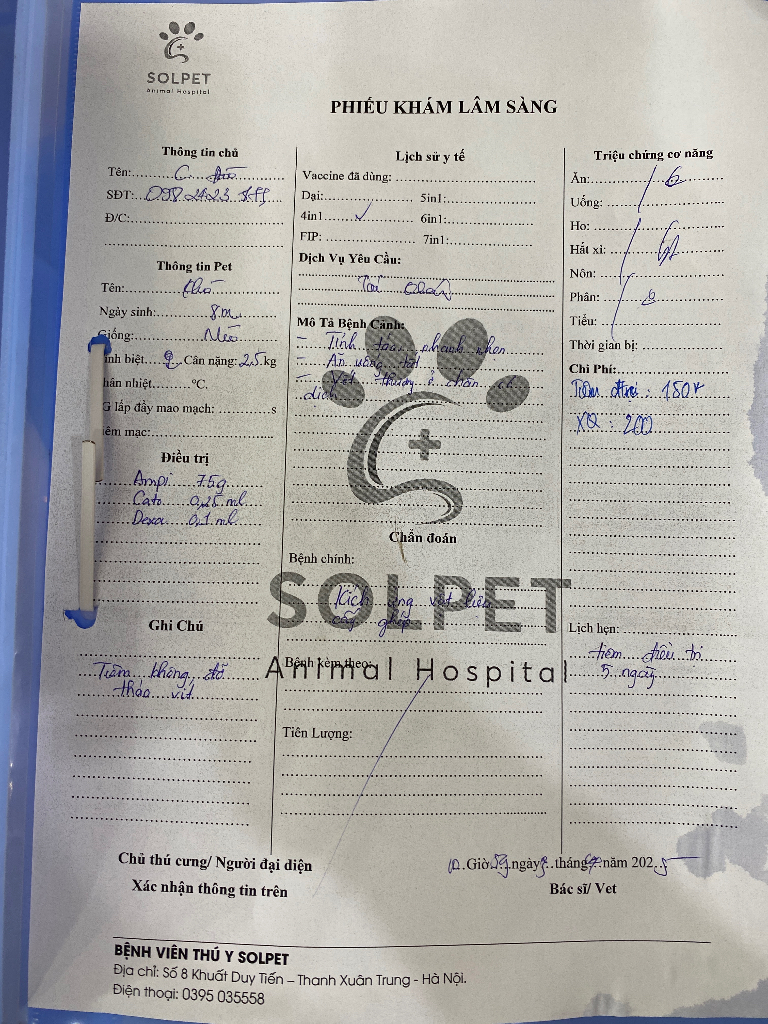 SOLPET
Animal Hospital
PHIẾU KHÁM LÂM SÀNG
Thông tin chủ
Tên: C.
SĐT:
Đ/C:
Thông tin Pet
Tên:
Ngày sinh: 8m
Giống: Mèo
inh biệt: ♀ Cân nặng: 2,5 kg
hân nhiệt: ºC.
G lấp đầy mao mạch: s
iêm mạc:
Điều trị
Ampi 75g
Cato 0,25 ml
Dexa 0,1 ml
Ghi Chú
Tiêm không đỡ
tháo vít
Lịch sử y tế
Vaccine đã dùng:
Dại: 5in1:
4in1 ✓ 6in1:
FIP: 7in1:
Dịch Vụ Yêu Cầu:
Tái
Mô Tả Bệnh Cảnh:
- Tỉnh táo, nhanh nhẹn
- Ăn uống tốt
- Vết thương ở chân
dịch
Chẩn đoán
Bệnh chính:
Kích ứng vật liệu
cấy ghép
Bệnh kèm theo:
Tiên Lượng:
SOLPET
Animal Hospital
Triệu chứng cơ năng
Ăn:
Uống:
Ho:
Hắt xì:
Nôn:
Phân:
Tiểu:
Thời gian bị:
Chi Phí:
Tiêm đtrị: 150k
XQ: 200
Lịch hẹn:
tiêm điều trị
5 ngày
Chủ thú cưng/ Người đại diện
Xác nhận thông tin trên
Giờ ngày tháng năm 2025
Bác sĩ/ Vet
BỆNH VIỆN THÚ Y SOLPET
Địa chỉ: Số 8 Khuất Duy Tiến – Thanh Xuân Trung - Hà Nội.
Điện thoại: 0395 035558